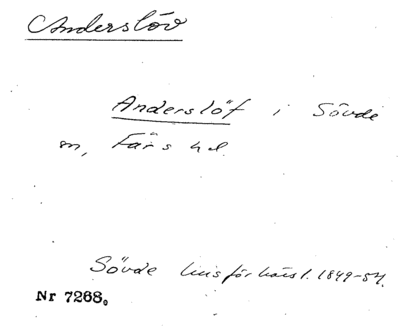 Anderslöv
Anderslöf i Sövde
sn, Färs hd.
Sövde husförhörsl. 1849-54.
Nr 7268.